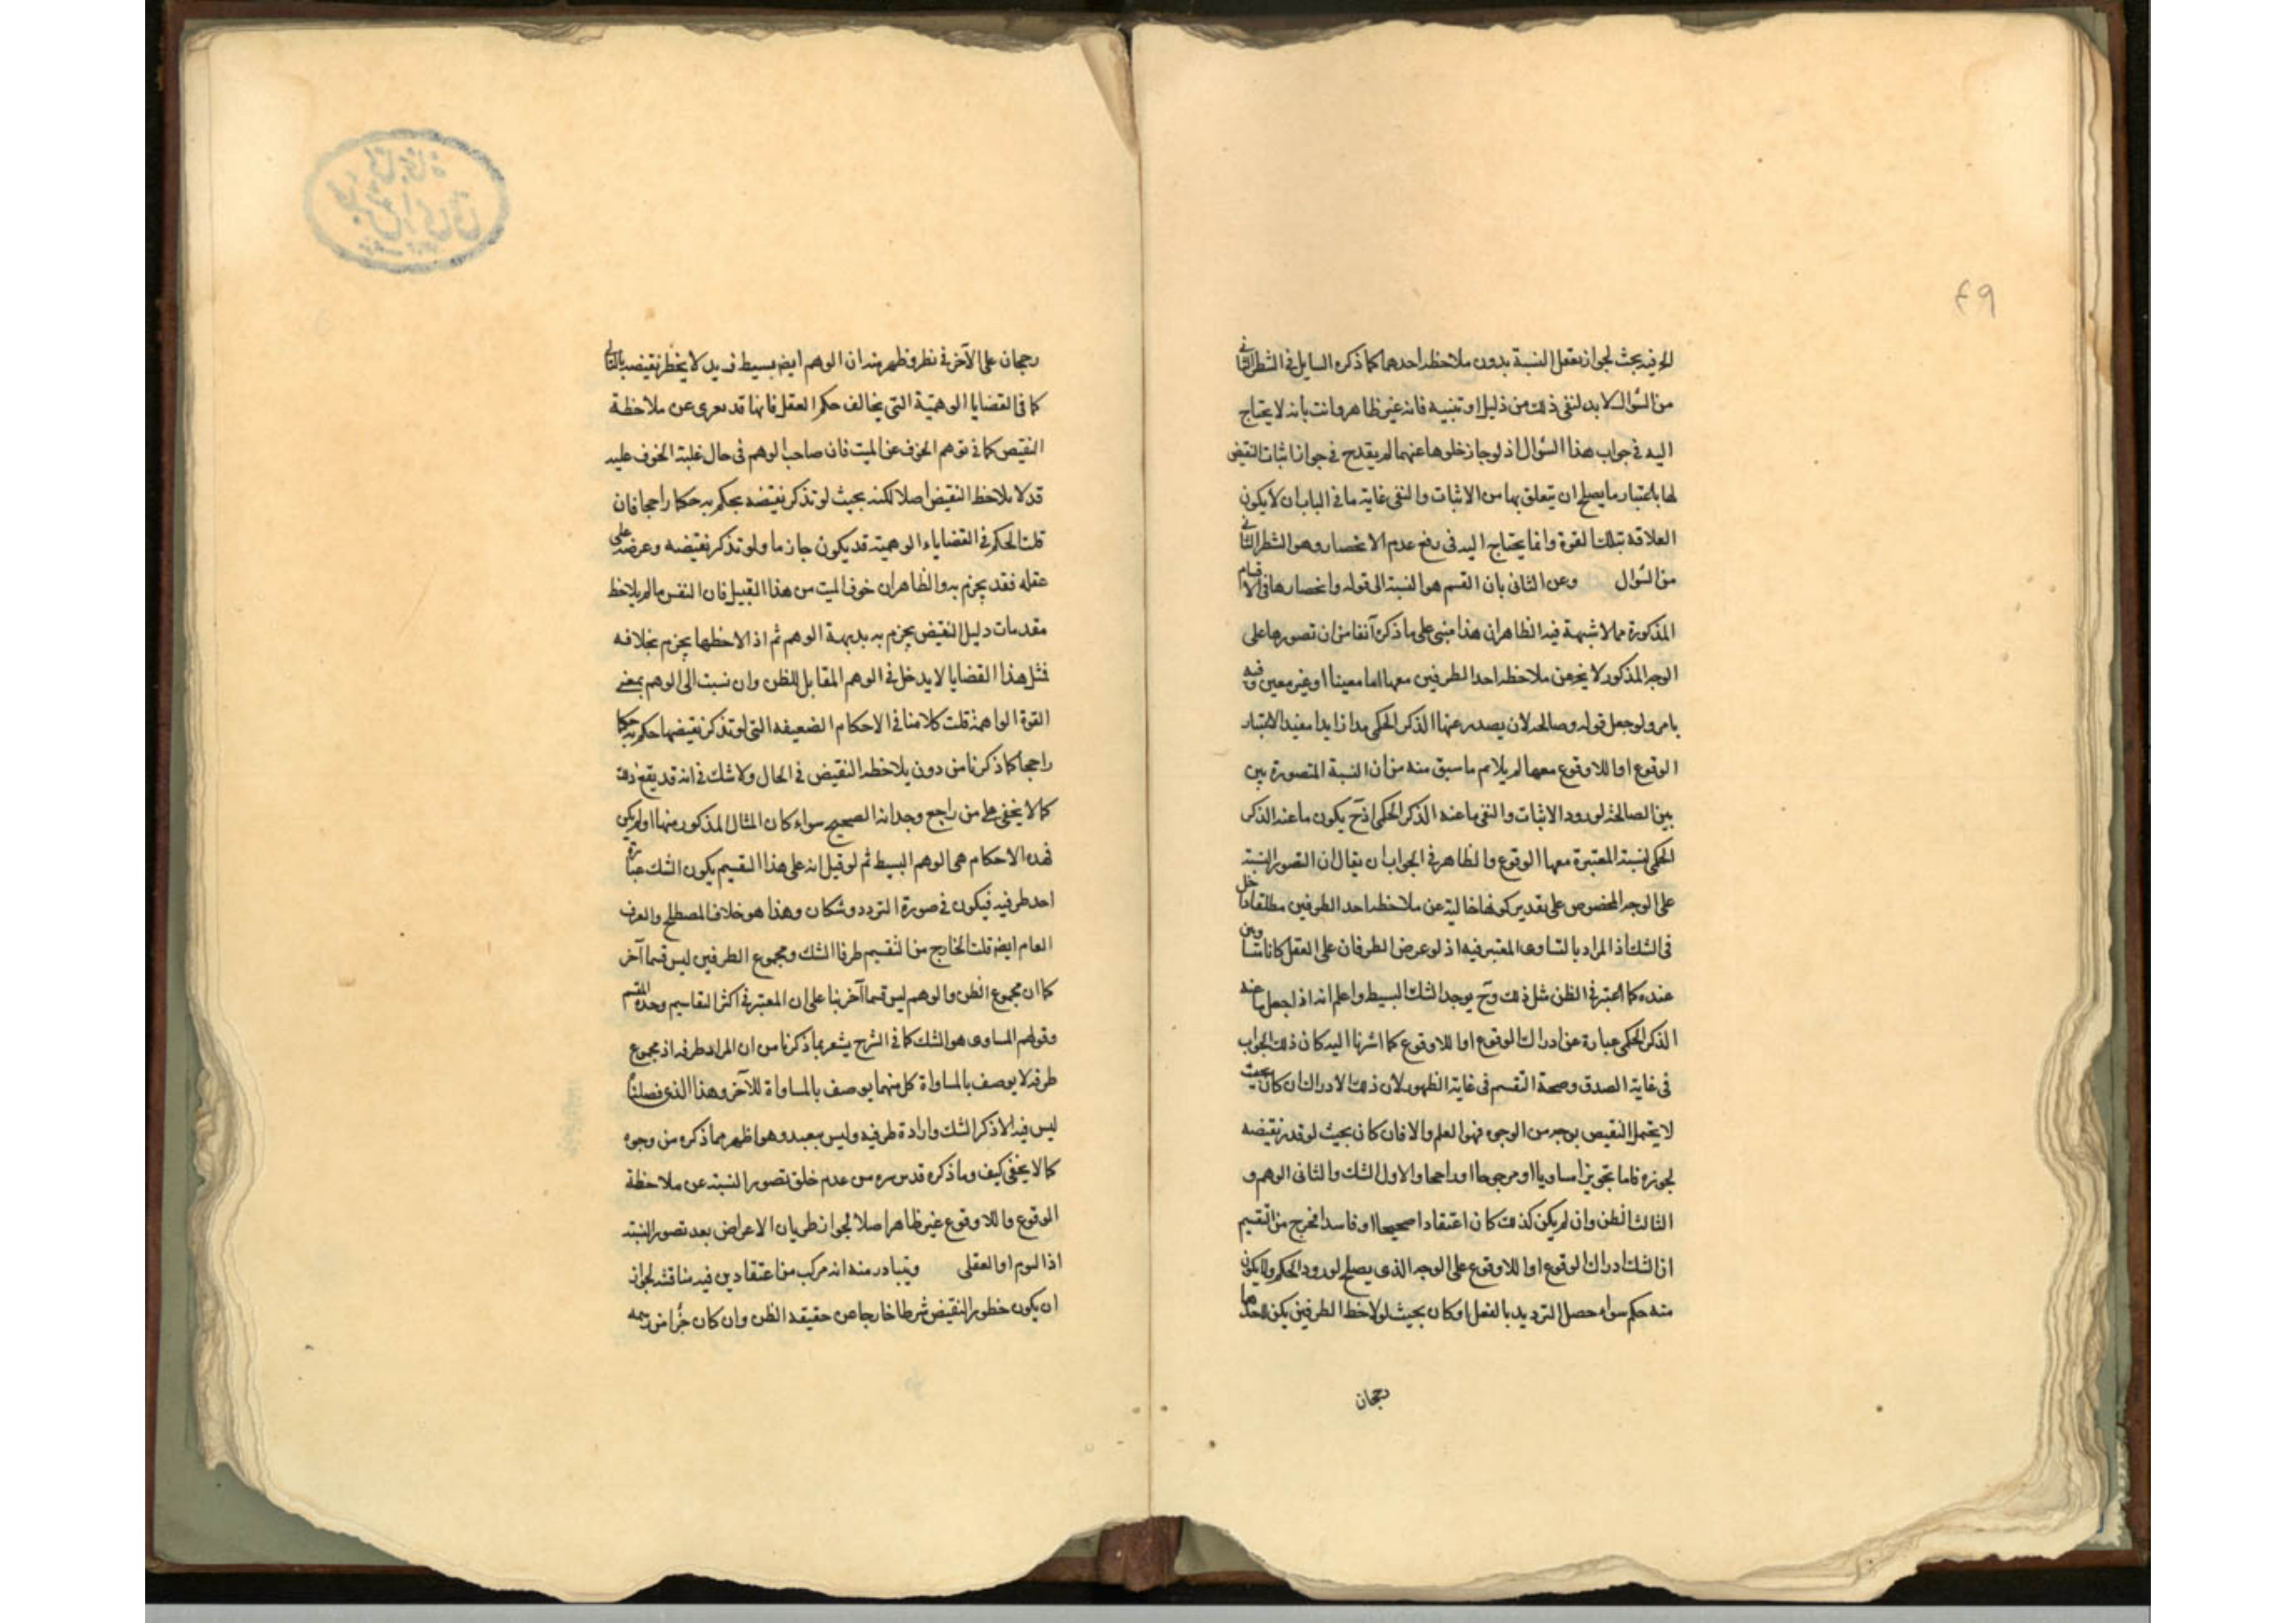 ٤٩
الخ فيه بحث لجواز تعقل النسبة بدون ملاحظة احدهما كما ذكره السايل في الشطر الثاني
من السؤال لا بد لنفى ذلك من دليل او تنبيه فانه غير ظاهر وانت بانه لا يحتاج
اليه في جواب هذا السؤال اذ لو جاز خلوها عنهما لم يقدح في جواز اثبات النقيض
لها باعتبار ما يصلح ان يتعلق بها من الاثبات والنفى غاية ما في الباب ان لا يكون
العلاقة بتلك القوة وانما يحتاج اليه في دفع عدم الانحصار وهو الشطر الثاني
من السؤال وعن الثانى بان القسم هو النسبة الى قوله وانحصارها في الاقسام
المذكورة مما لا شبهة فيه الظاهر ان هذا مبنى على ما ذكره آنفا من ان تصورها على
الوجه المذكور لا يخ عن ملاحظة احد الطرفين معها اما معينا او غير معين وفيه
ما مر ولو جعل قوله وصالحة لان يصدر عنها الذكر الحكمى مدا زايدا مفيدا لاعتبار
الوقوع او اللاوقوع معها لم يلايم ما سبق منه من ان النسبة المتصورة بين
بين الصالحة لورود الاثبات والنفى ما عنه الذكر الحكمى اذ ح يكون ما عنه الذكر
الحكمى لنسبة المعتبرة معها الوقوع والظاهر في الجواب ان يقال ان التصور النسبة
على الوجه المخصوص على تقدير كونها خالية عن ملاحظة احد الطرفين مطلقا داخل
فى الشك اذ المراد بالتساوى المعتبر فيه اذ لو عرض الطرفان على العقل كانا متساويين
عنده كما اعتبر في الظن مثل ذلك وح يوجد الشك البسيط واعلم انه اذا جعل ما عنه
الذكر الحكمى عبارة عن ادراك الوقوع او اللاوقوع كما اشرنا اليه كان ذلك الجواب
فى غاية الصدق وصحة التقسيم في غاية الظهور لان ذلك الادراك ان كان بحيث
لا يحتمل النقيض بوجه من الوجوه فهو العلم والا فان كان بحيث لو قدر نقيضه
لجوزه فاما تجويزا مساويا او مرجوحا او راجحا والاول الشك والثانى الوهم و
الثالث الظن وان لم يكن كذلك كان اعتقادا صحيحا او فاسدا فخرج من التقسيم
ان الشك ادراك الوقوع او اللاوقوع على الوجه الذى يصلح لورود الحكم ولا يكون
منه حكم سواء حصل الترديد بالفعل او كان بحيث لو لاحظ الطرفين يكن لاحدهما
رجحان
رجحان على الآخر في نظر وظهر منه ان الوهم ايض بسيط لا يخطر نقيضه بالبال
كما في القضايا الوهمية التى يخالف حكم العقل فانها قد يعرى عن ملاحظة
النقيض كما في توهم الخوف عن الميت فان صاحب الوهم فى حال غلبة الخوف عليه
قد لا يلاحظ النقيض اصلا لكنه بحيث لو تذكر نقيضه يحكم به حكما راجحا فان
قلت الحكم في القضاياء الوهمية قد يكون جازما ولو تذكر نقيضه وعرضه على
عقله فقد يجزم به والظاهر ان خوف الميت من هذا القبيل فان النفس ما لم يلاحظ
مقدمات دليل النقيض يجزم به بديهة الوهم ثم اذا لاحظها يجزم بخلافه
فمثل هذا القضايا لا يدخل في الوهم المقابل للظن وان نسبت الى الوهم بمعنى
القوة الواهمة قلت كلامنا في الاحكام الضعيفه التى لو تذكر نقيضها حكم به حكما
راجحا كما ذكرنا من دون يلاحظه النقيض في الحال ولا شك في انه قد يقع ذلك
كما لا يخفى على من راجع وجدانه الصحيح سواء كان المثال المذكور منها او لم يكن
فهذه الاحكام هى الوهم البسيط ثم لو قيل انه على هذا التقسيم يكون الشك عبارة
احد طرفيه فيكون في صورة التردد وشكان وهذا هو خلاف المصطلح والعرف
العام ايض قلت الخارج من التقسيم طرفا الشك ومجموع الطرفين ليس قسما آخر
كما ان مجموع الظن والوهم ليس قسما آخر بنا على ان المعتبر في اكثر التقاسيم وحدة المقسم
وقولهم المساوى هو الشك كما في الشرح يشعر بما ذكرنا من ان المراد طرفه اذ مجموع
طرفه لا يوصف بالمساواة كل منهما يوصف بالمساواة للآخر وهذا الذى فصلناه
ليس فيه الا ذكر الشك وارادة طرفيه وليس ببعيد وهو اظهر مما ذكره من وجوه
كما لا يخفى كيف وما ذكره قدس سره من عدم خلق تصور النسبة عن ملاحظة
الوقوع واللاوقوع غير ظاهر اصلا لجواز طريان الاعراض بعد تصور النسبة
اذا لوم او العقلى ويتبادر منه انه مركب من اعتقادين فيه مناقشه لجواز
ان يكون خطور النقيض شرطا خارجا عن حقيقة الظن وان كان جزأ من